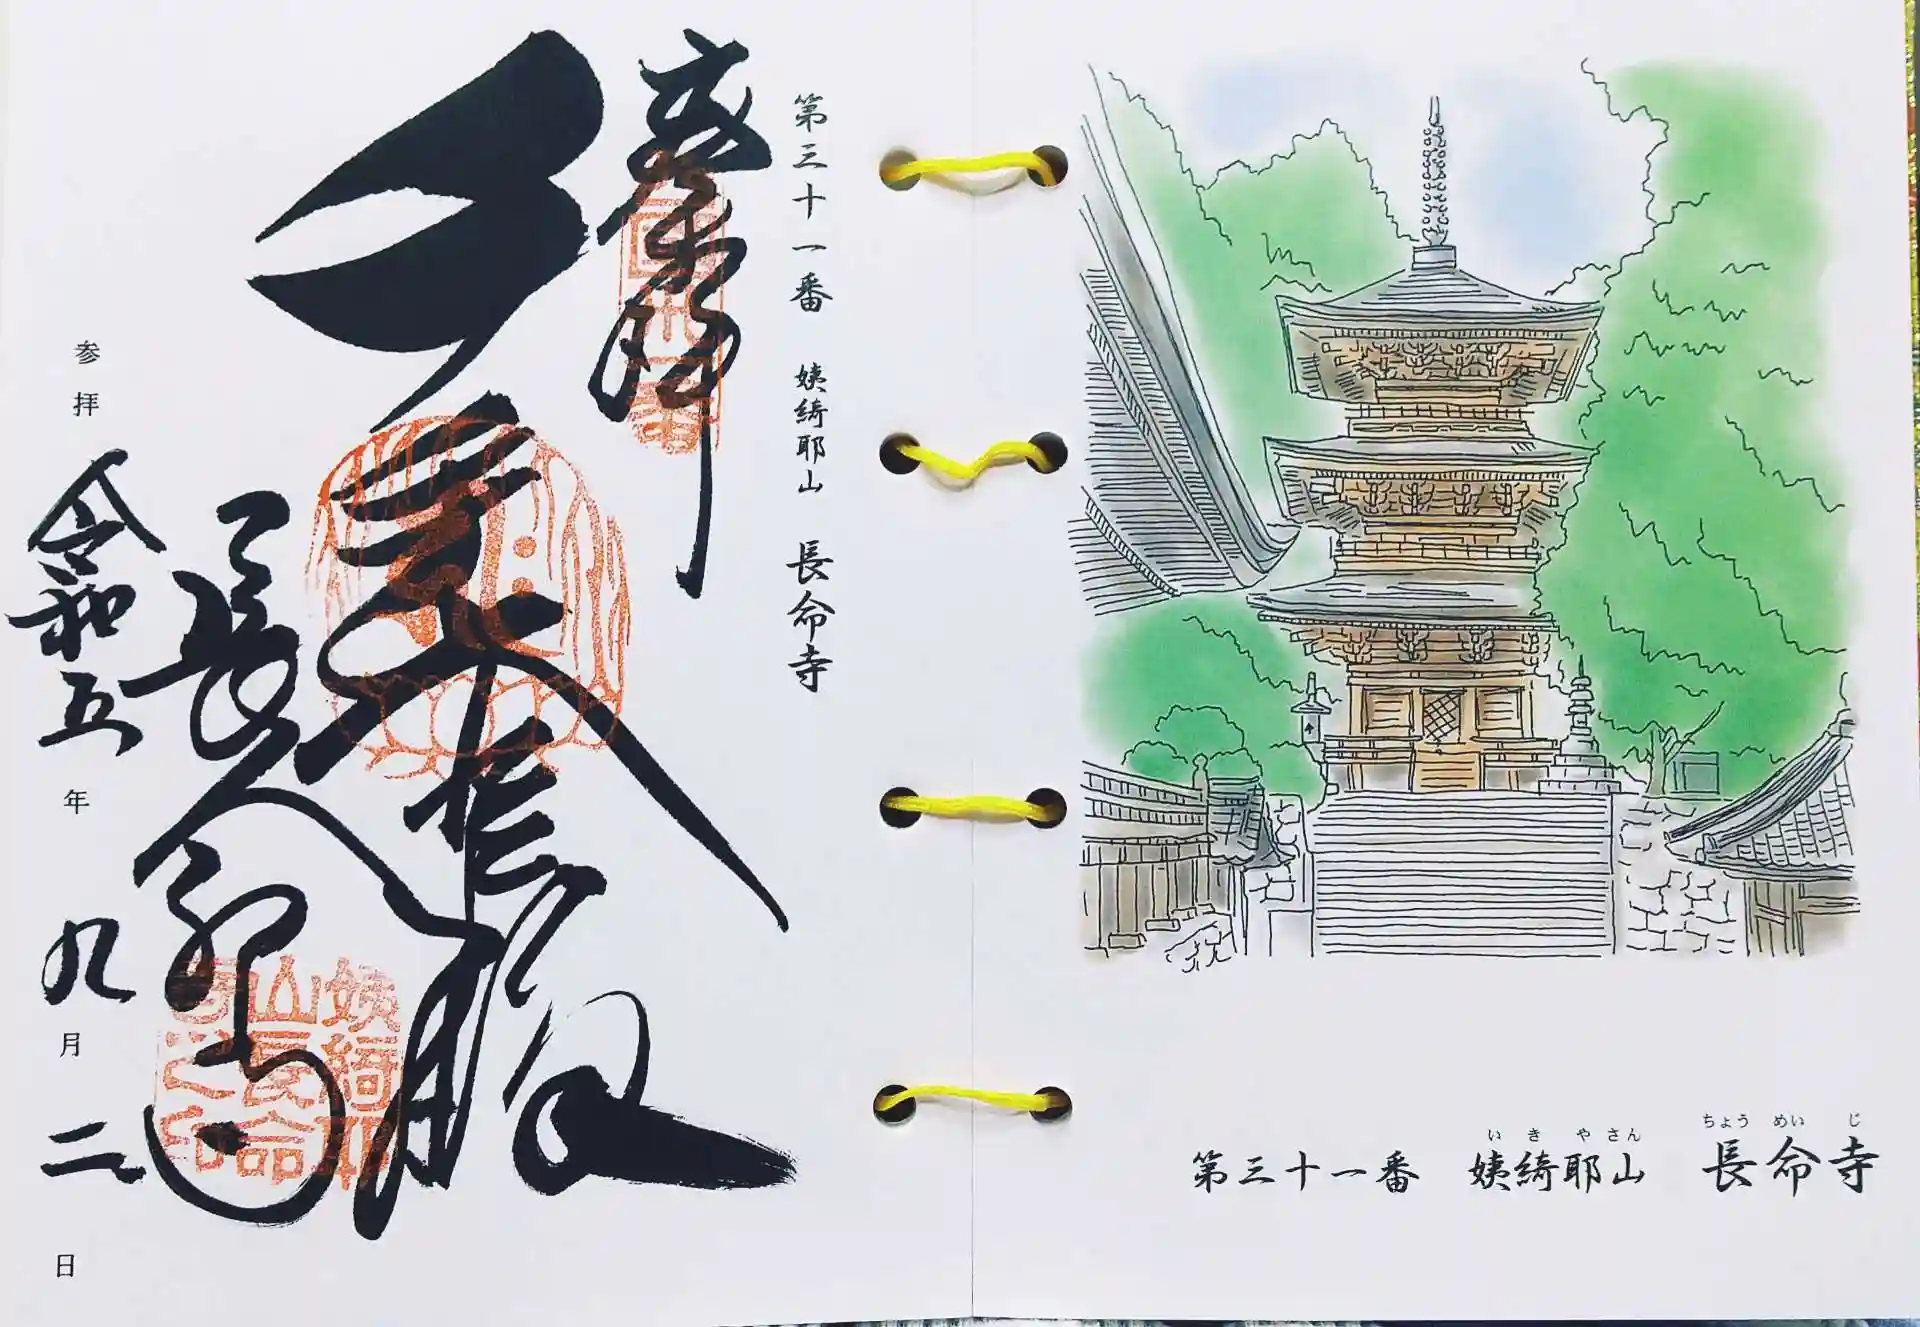 第三十一番 姨綺耶山 長命寺
西国
三十一番
千手
大悲殿
長命寺
姨綺耶
山長命
寺之印
参拝 令和五年 九月 二日
いきやさん ちょうめいじ
第三十一番 姨綺耶山 長命寺